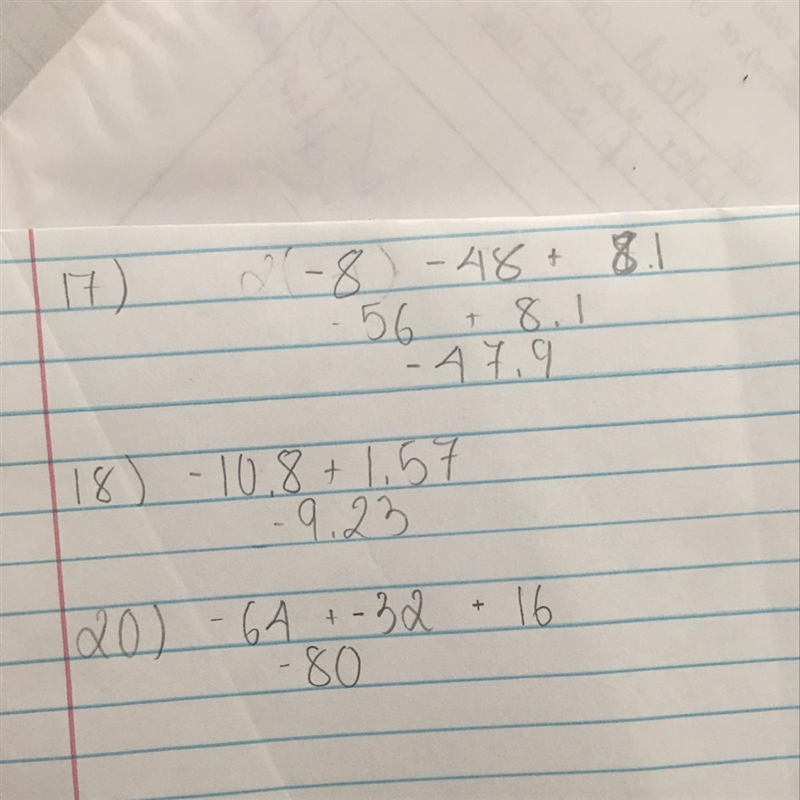 17) 2(-8) -48 + 8.1
-56 + 8.1
-47.9
18) -10.8 + 1.57
-9.23
20) -64 + -32 + 16
-80